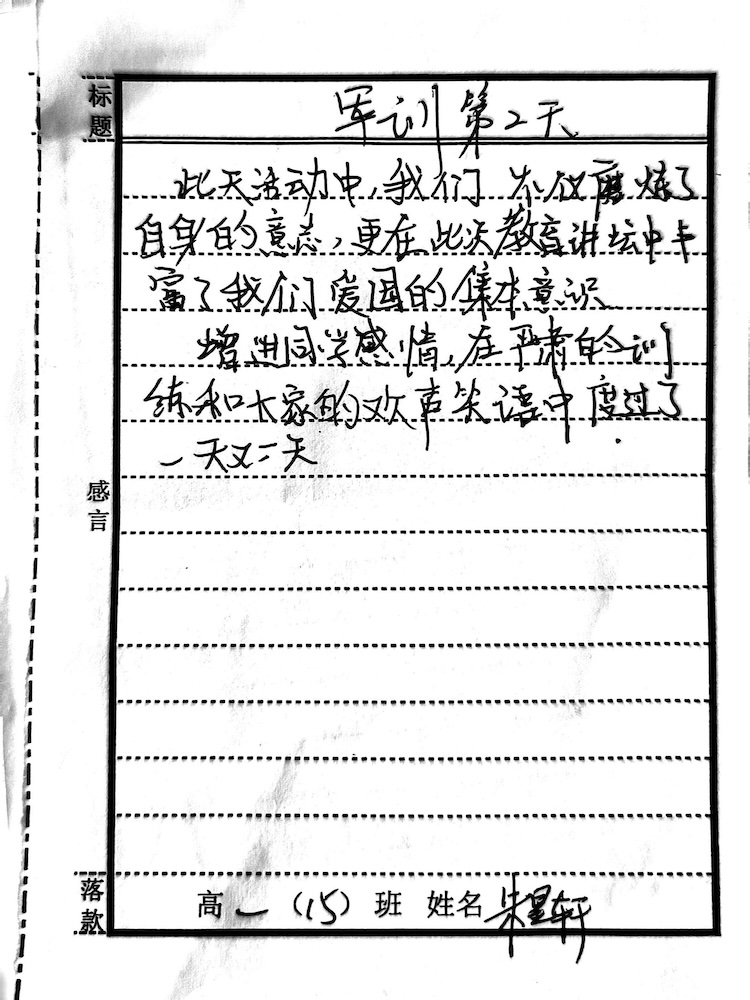 标题
军训第2天
此天活动中,我们不仅磨炼了
自身的意志,更在此次教育讲坛中丰
富了我们爱国的集体意识
增进同学感情,在严肃的训
练和大家的欢声笑语中度过了
一天又一天
感言
落款
高一(15)班 姓名朱星轩